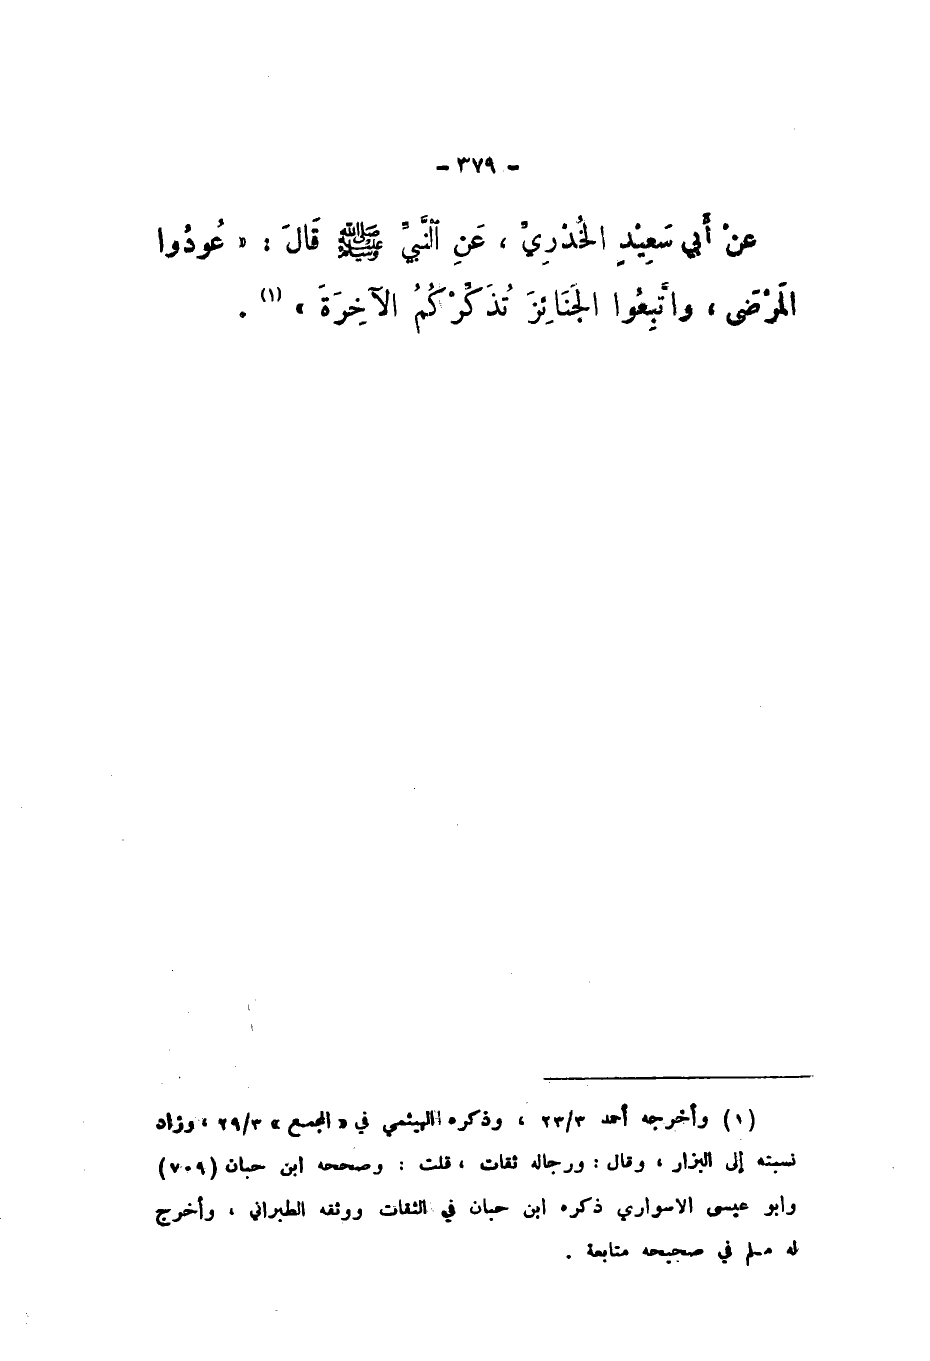 - ٣٧٩ -
عنْ أَبي سَعِيْدٍ الخُدْرِيِّ ، عَنِ ٱلنَّبيِّ ﷺ قَالَ : « عُودُوا
المَرْضَى ، واتَّبِعُوا الجَنَائِزَ تُذَكِّرْكُمُ الآخِرَةَ » (١) .
(١) وأخرجه أحمد ٢٣/٣ ، وذكره الهيثمي في « المجمع » ٢٩/٣ ، وزاد
نسبته إلى البزار ، وقال : ورجاله ثقات ، قلت : وصححه ابن حبان (٧٠٩)
وابو عيسى الاسواري ذكره ابن حبان في الثقات ووثقه الطبراني ، وأخرج
له مسلم في صحيحه متابعة .